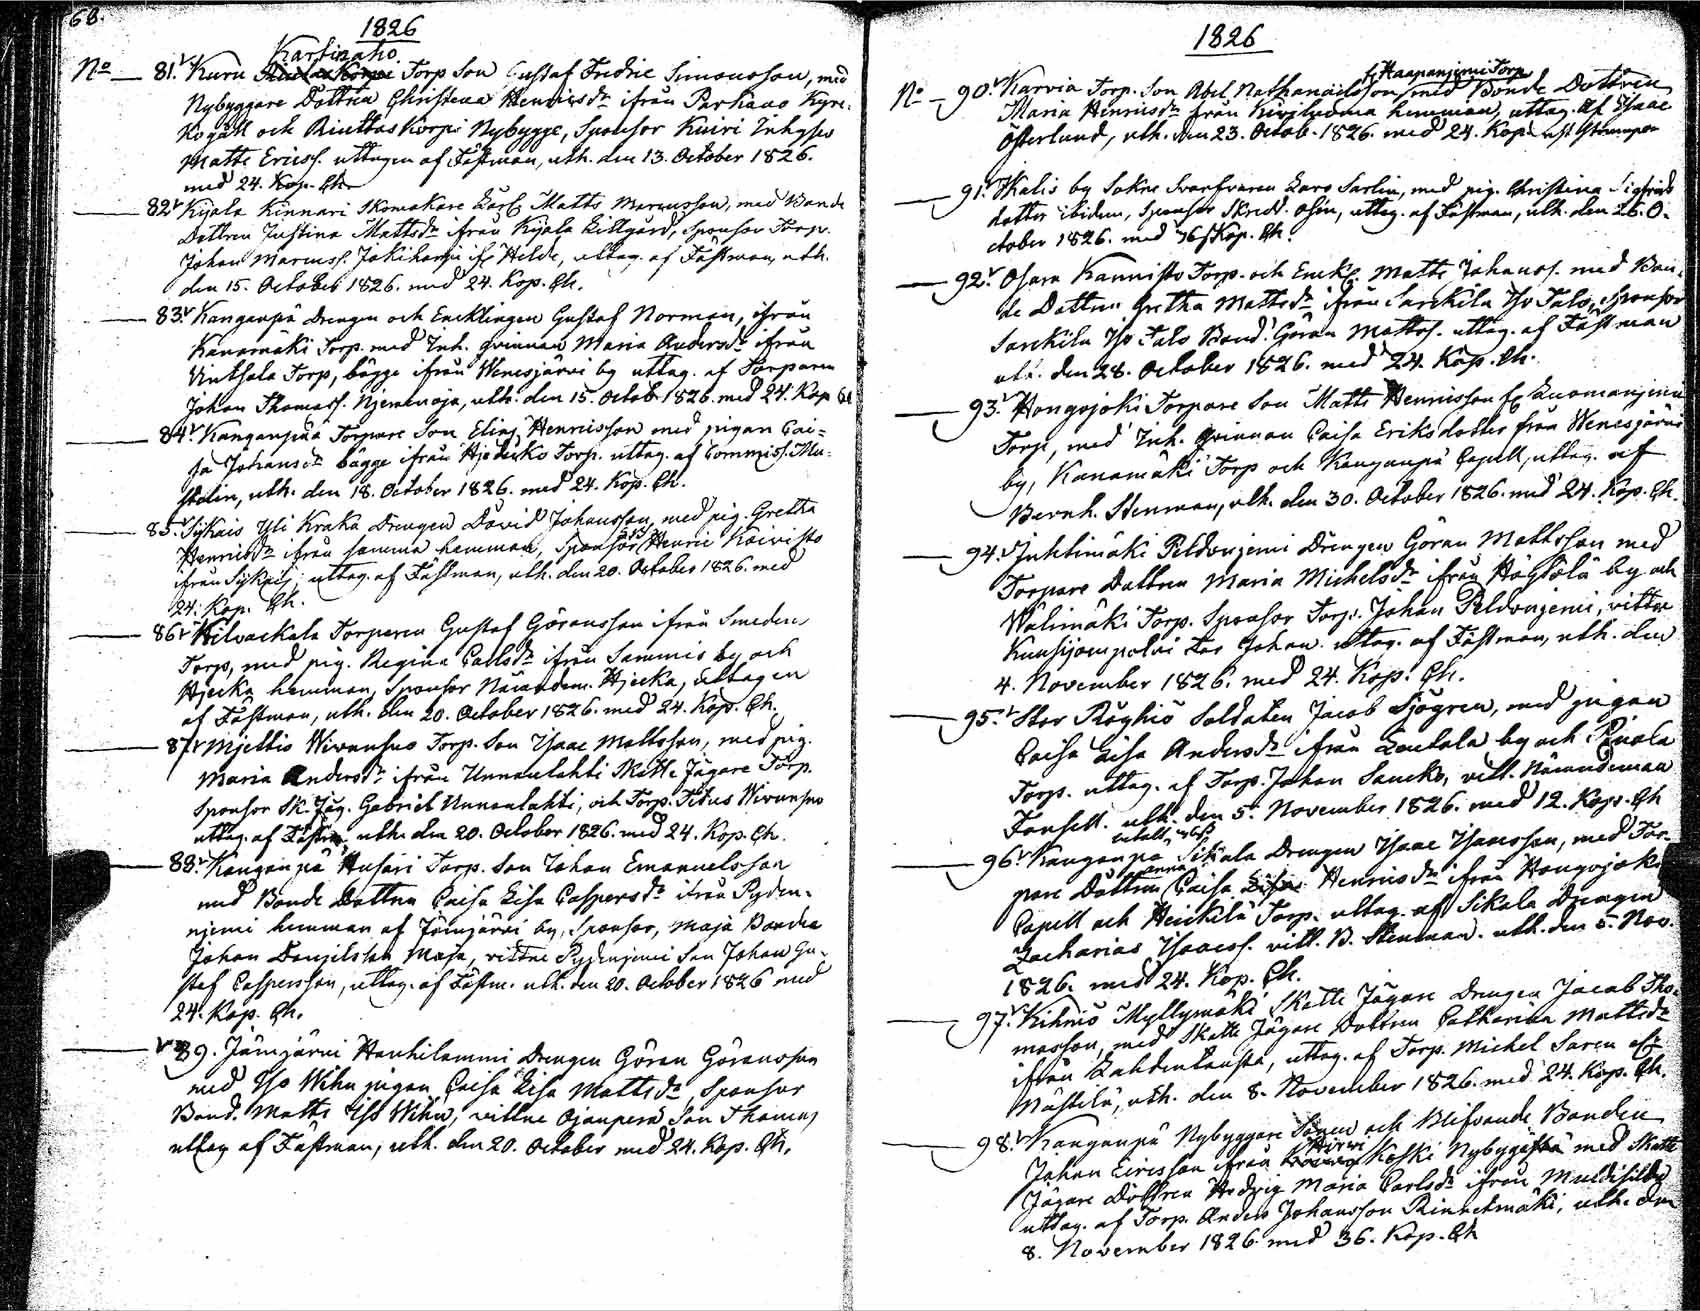 68.
1826
Karhinaho.
No 81. Kuru Torp Son Gustaf Fredric Simonsson, med
Nybyggare Dottren Christina Henricsdr ifrån Parkano Kyro
Kogäll och Riuttaskorpi Nybygge, Sponsor Kuiri Inhyses
Matts Ericss. uttagen af Fästman, uth. den 13. October 1826.
med 24. Kop. Ch.
82 Kyrola Kinnari Skomakare Lärl. Matts Marcusson, med Bonde
Dottren Justina Mattsdr ifrån Kyrola Lillgård, Sponsor Torp.
Johan Marcuss. Jokiharju uttag. af Fästman, uth.
den 15. October 1826. med 24. Kop. Ch.
83. Kanganpä Drengen och Encklingen Gustaf Norrman, ifrån
Kanamäki Torp. med Inh. qvinnan Maria Andersdr ifrån
Torp, bägge ifrån Wenesjärvi by uttag. af Torparen
Johan Thomass. Njemenoja, uth. den 15. Octob. 1826. med 24. Kop Ch
84. Kanganpää Torpare Son Elias Henricsson med pigan Cai=
sa Johansdr bägge ifrån Torp. uttag. af Commiss. Mu=
stelin, uth. den 18. October 1826. med 24. Kop. Ch.
85. Sijkais Yli Kraka Drengen David Johansson, med pig. Gretha
Henricsdr ifrån samma hemman, Sponsor Henric Koivisto
ifrån Sijkais, uttag. af Fästman, uth. den 20. October 1826. med
24. Kop. Ch.
86 Wilvackala Torparen Gustaf Göransson ifrån Smedens
Torp, med pig. Regina Carlsdr ifrån Sammis by och
Hjerka hemman, Sponsor Nämndem. Hjerka, uttagen
af Fästman, uth. den 20. October 1826. med 24. Kop. Ch.
87 Mjettis Wirunsuo Torp. Son Isaac Mattsson, med pig.
Maria Andersdr ifrån Unnaulahti Skatte Jägare Torp.
Sponsor Sk. Jäg. Gabriel Unnanlahti, och Torp. Titus Wirunsuo
uttag. af Fästm. uth. den 20. October 1826. med 24. Kop. Ch.
88. Kanganpä Husari Torp. Son Johan Emanuelsson
med Bonde Dottren Caisa Lisa Caspersdr ifrån Pyden=
njemi hemman af Jämijärvi by, Sponsor, Maja Bonden
Johan Danjelsson Maja, vittne Pydenjemi Son Johan Gu=
staf Caspersson, uttag. af Fästm. uth. den 20. October 1826 med
24. Kop. Ch.
89. Jämijärvi Hauhilammi Drengen Göran Göransson
med Iso Wihu pigan Caisa Lisa Mattsdr, Sponsor
Bond. Matts Iso Wihu, vittne Ojanperä Son Thomas
uttag af Fästman, uth. den 20. October med 24. Kop. Ch.
1826
Haapanjemi Torp
No 90. Karvia Torp. Son Abel Nathanaelsson med Bonde Dottren
Maria Henricsdr från hemman, uttag. af Isaac
Österlund, uth. den 23. Octob. 1826. med 24. Kop.
91. Walis by Sokne Svarfvaren Lars Sarlin, med pig. Christina Sigfrids
dotter ibidem, Sponsor Skredd. uttag. af Fästman, uth. den 26. O=
ctober 1826. med Kop. Ch.
92. Osara Kannisto Torp. och Enckl. Matts Johanss. med Bon=
de Dottren Gretha Mattsdr ifrån Sarckila Iso Talo, Sponsor
Sarckila Iso Talo Bond. Göran Mattss. uttag. af Fästman
uth. den 28. October 1826. med 24. Kop. Ch.
93. Hongojoki Torpare Son Matts Henricsson Luomanjemi
Torp, med Inh. qvinnan Caisa Ericsdotter från Wenesjärvi
by, Kanamäki Torp och Kanganpä Capell, uttag. af
Bernh. Stenman, uth. den 30. October 1826. med 24. Kop. Ch.
94. Juhtimäki Peldonjemi Drengen Göran Mattsson med
Torpare Dottren Maria Michelsdr ifrån by och
Wälimäki Torp. Sponsor Torp. Johan Peldonjemi, vittne
Johan. uttag. af Fästman, uth. den
4. November 1826. med 24. Kop. Ch.
95. Stor Röyhiö Soldaten Jacob Sjögren, med pigan
Caisa Lisa Andersdr ifrån Lautala by och
Torp. uttag. af Torp. Johan vitt. Nämndeman
uth. den 5. November 1826. med 12. Kop. Ch
96 Kanganpä Sikala Drengen Isaac Isaacsson, med Tor=
pare Dottren Caisa Henricsdr ifrån Hongojoki
Capell och Heickilä Torp. uttag. af Sikala Drengen
Zacharias Isaacss. vitt. B. Stenman. uth. den 5. Nov.
1826. med 24. Kop. Ch.
97. Kihniö Myllymäki Skatte Jägare Drengen Jacob Tho=
masson, med Skatte Jägare Dottren Catharina Mattsdr
ifrån uttag. af Torp. Michel Saren
uth. den 8. November 1826. med 24. Kop. Ch.
98. Kanganpä Nybyggare Sonen och Blifvande Bonden
Johan Ericsson ifrån Hirvi Koski Nybygge med Skatte
Jägare Dottren Hedvig Maria Carlsdr ifrån
uttag. af Torp. Anders Johansson Rinnetmäki, uth. den
8. November 1826 med 36. Kop. Ch